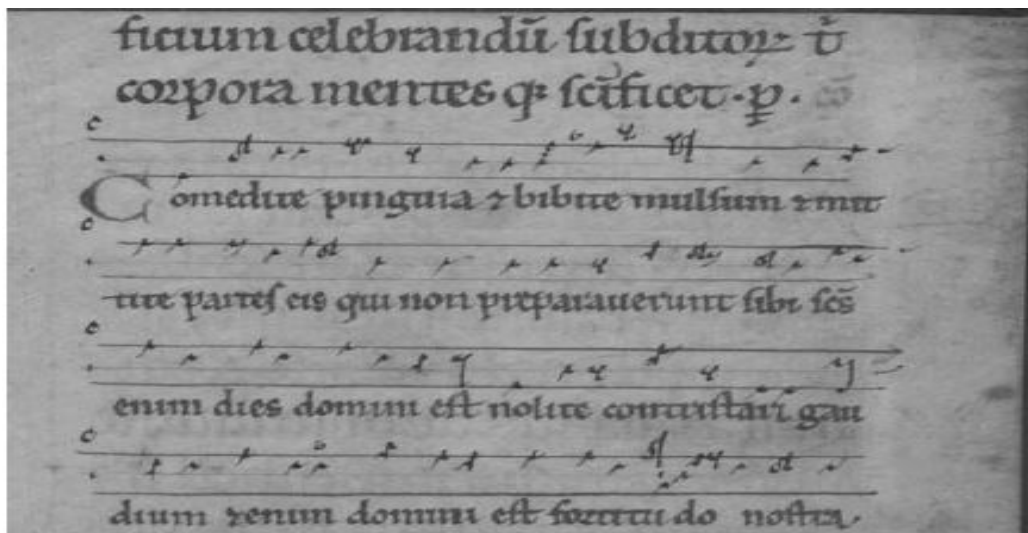 ficium celebrandū subditoꝝ t̄
corpora mentes qꝫ scīficet · ꝑ · cō
Comedite pinguia ⁊ bibite mulsum ⁊ mit
tite partes eis qui non preparauerunt sibi scs̄
enim dies domini est nolite contristari gau
dium ⁊enim domini est fortitu do nostra.